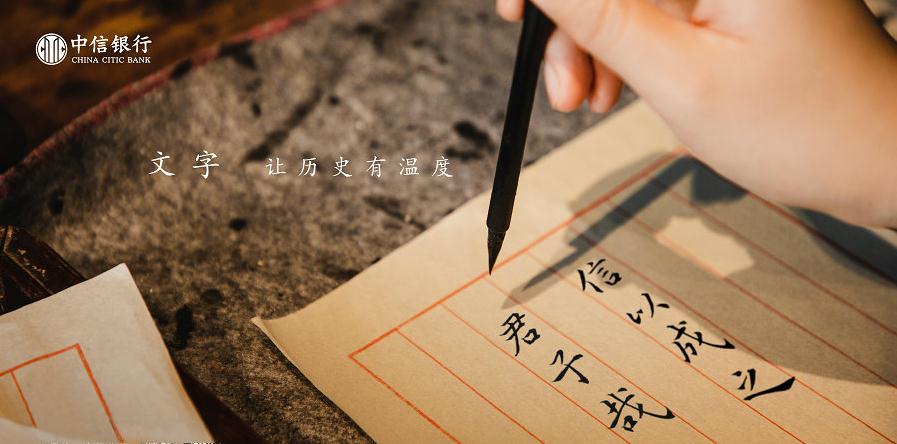 中信银行
CHINA CITIC BANK
文字 让历史有温度
信以成之
君子哉